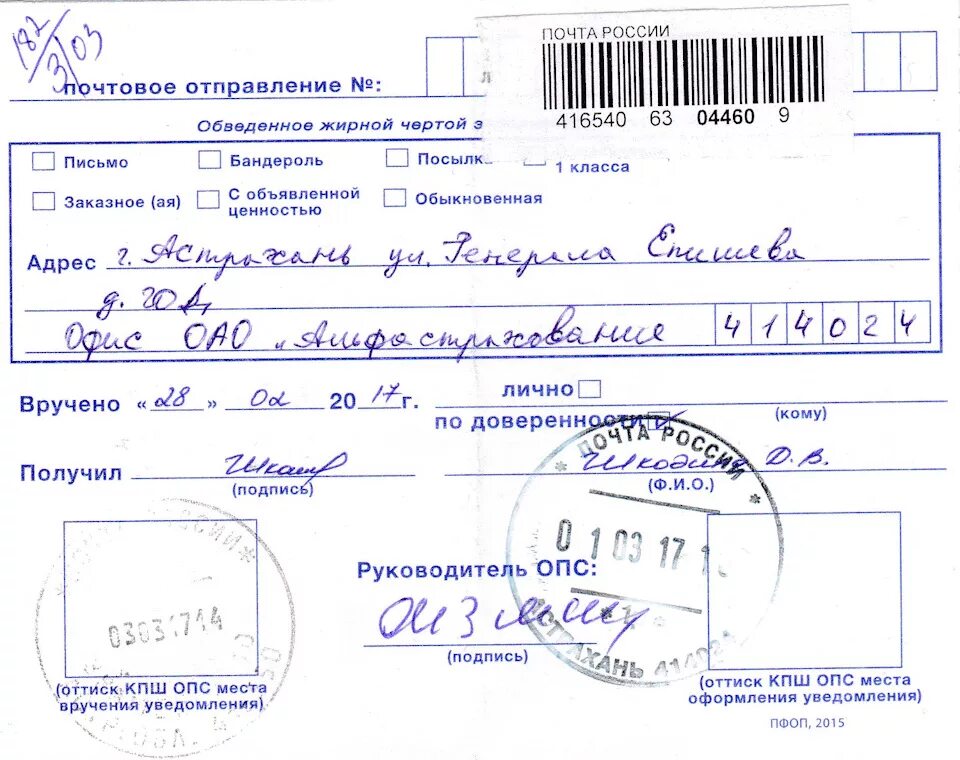 182/3/03
ПОЧТА РОССИИ
почтовое отправление №:
416540 63 04460 9
Обведенное жирной чертой з
Письмо Бандероль Посылк 1 класса
Заказное (ая) С объявленной ценностью Обыкновенная
Адрес г. Астрахань ул. Генерала Епишева
д.
Офис ОАО „Альфастрахование 414024
Вручено «28» 02 2017г. лично
по доверенности (кому)
Получил Шкодин Д.В.
(подпись) (Ф.И.О.)
ПОЧТА РОССИИ
01 03 17 1
АСТРАХАНЬ
Руководитель ОПС:
(подпись)
03031714
(оттиск КПШ ОПС места
вручения уведомления)
(оттиск КПШ ОПС места
оформления уведомления)
ПФОП, 2015